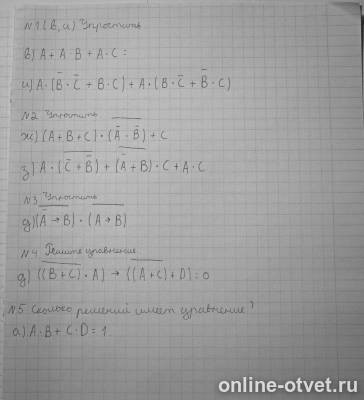 №1 (в, и) Упростить
в) A + A B + A · C =
и) A · (B̅ · C̅ + B · C) + A · (B · C̅ + B̅ · C)
№2 Упростить
ж) (A + B + C) · (A̅ · B̅) + C
з) A · (C̅ + B̅) + (A̅ + B) · C + A · C
№3 Упростить
д) (A̅ → B) · (A → B)
№4 Решите уравнение
д) ((B + C) · A) → ((A + C) + D) = 0
№5 Сколько решений имеет уравнение?
а) A · B + C · D = 1
online-otvet.ru